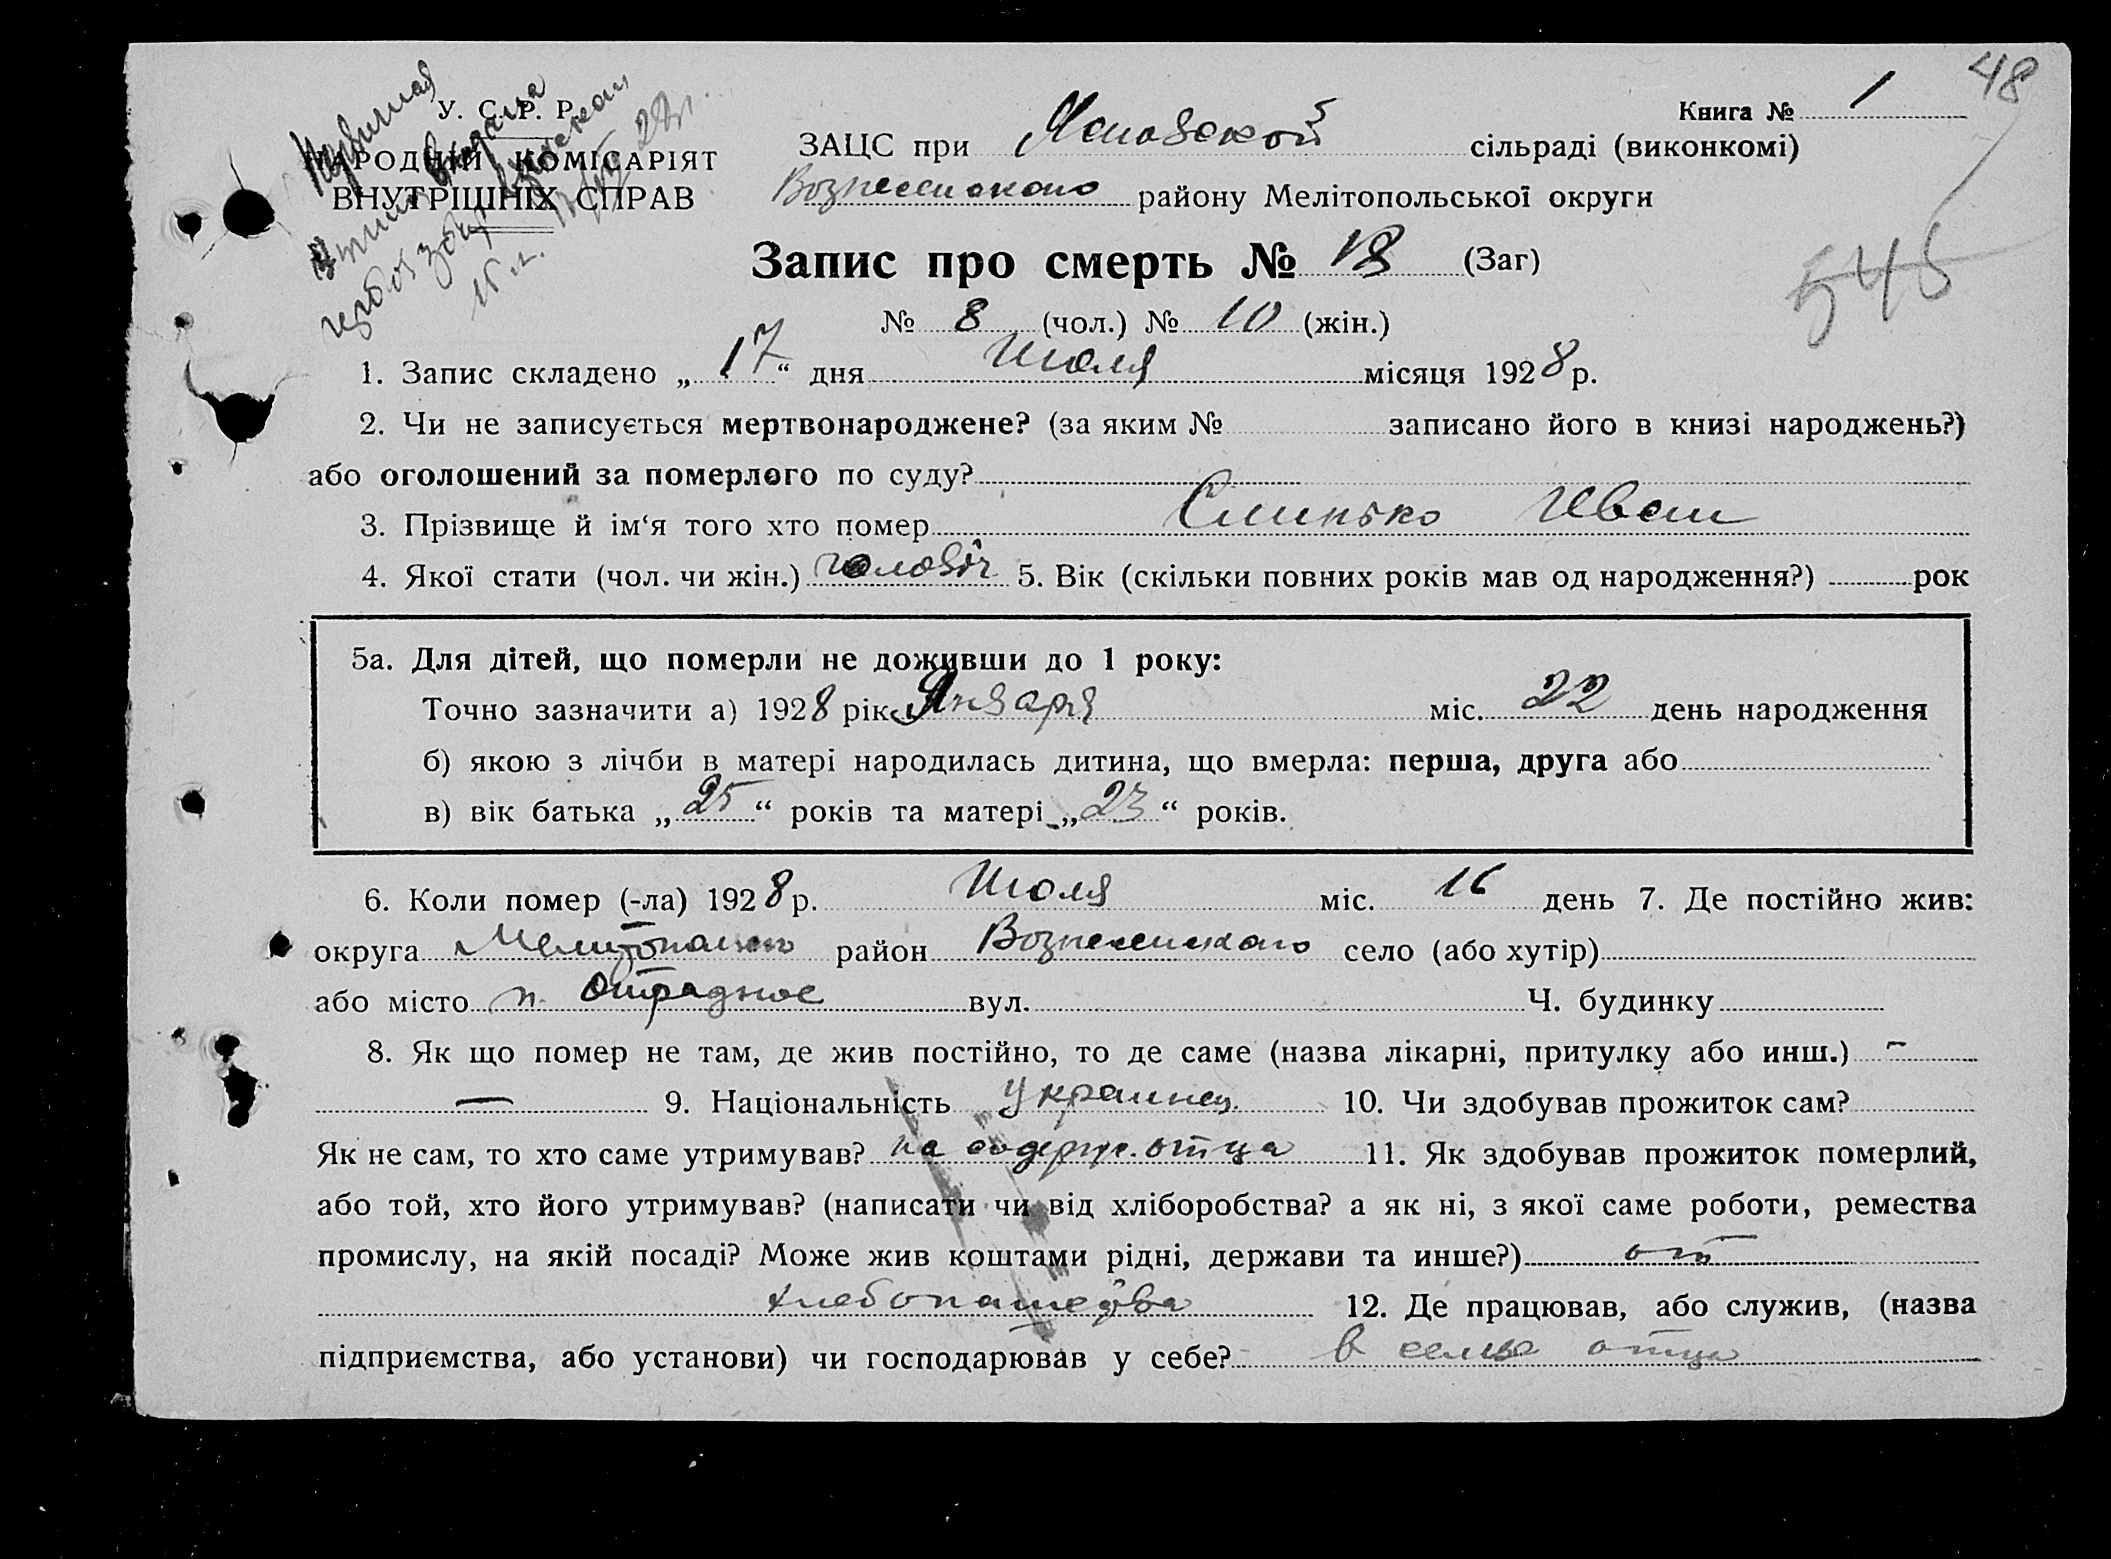 48
У. С. Р. Р.
НАРОДНІЙ КОМІСАРІЯТ
ВНУТРІШНІХ СПРАВ
Книга № 1
ЗАЦС при сільраді (виконкомі)
Вознесенского району Мелітопольської округи
Запис про смерть № 18 (Заг)
545
№ 8 (чол.) № 10 (жін.)
1. Запис складено „ 17 “ дня Июля місяця 1928 р.
2. Чи не записується мертвонароджене? (за яким № записано його в книзі народжень?)
або оголошений за померлого по суду?
3. Прізвище й ім‘я того хто помер Слинько Иван
4. Якої стати (чол. чи жін.) чоловіч 5. Вік (скільки повних років мав од народження?) рок
5а. Для дітей, що померли не доживши до 1 року:
Точно зазначити а) 1928 рік Января міс. 22 день народження
б) якою з лічби в матері народилась дитина, що вмерла: перша, друга або
в) вік батька „ 25 “ років та матері „ 23 “ років.
6. Коли помер (-ла) 1928 р. Июля міс. 16 день 7. Де постійно жив:
округа район Вознесенского село (або хутір)
або місто п. Отрадное вул. Ч. будинку
8. Як що помер не там, де жив постійно, то де саме (назва лікарні, притулку або инш.) -
— 9. Національність украинец 10. Чи здобував прожиток сам?
Як не сам, то хто саме утримував? на содерж. отца 11. Як здобував прожиток померлий,
або той, хто його утримував? (написати чи від хліборобства? а як ні, з якої саме роботи, ремества
промислу, на якій посаді? Може жив коштами рідні, держави та инше?) от
хлебопашества 12. Де працював, або служив, (назва
підприємства, або установи) чи господарював у себе? в семье отца